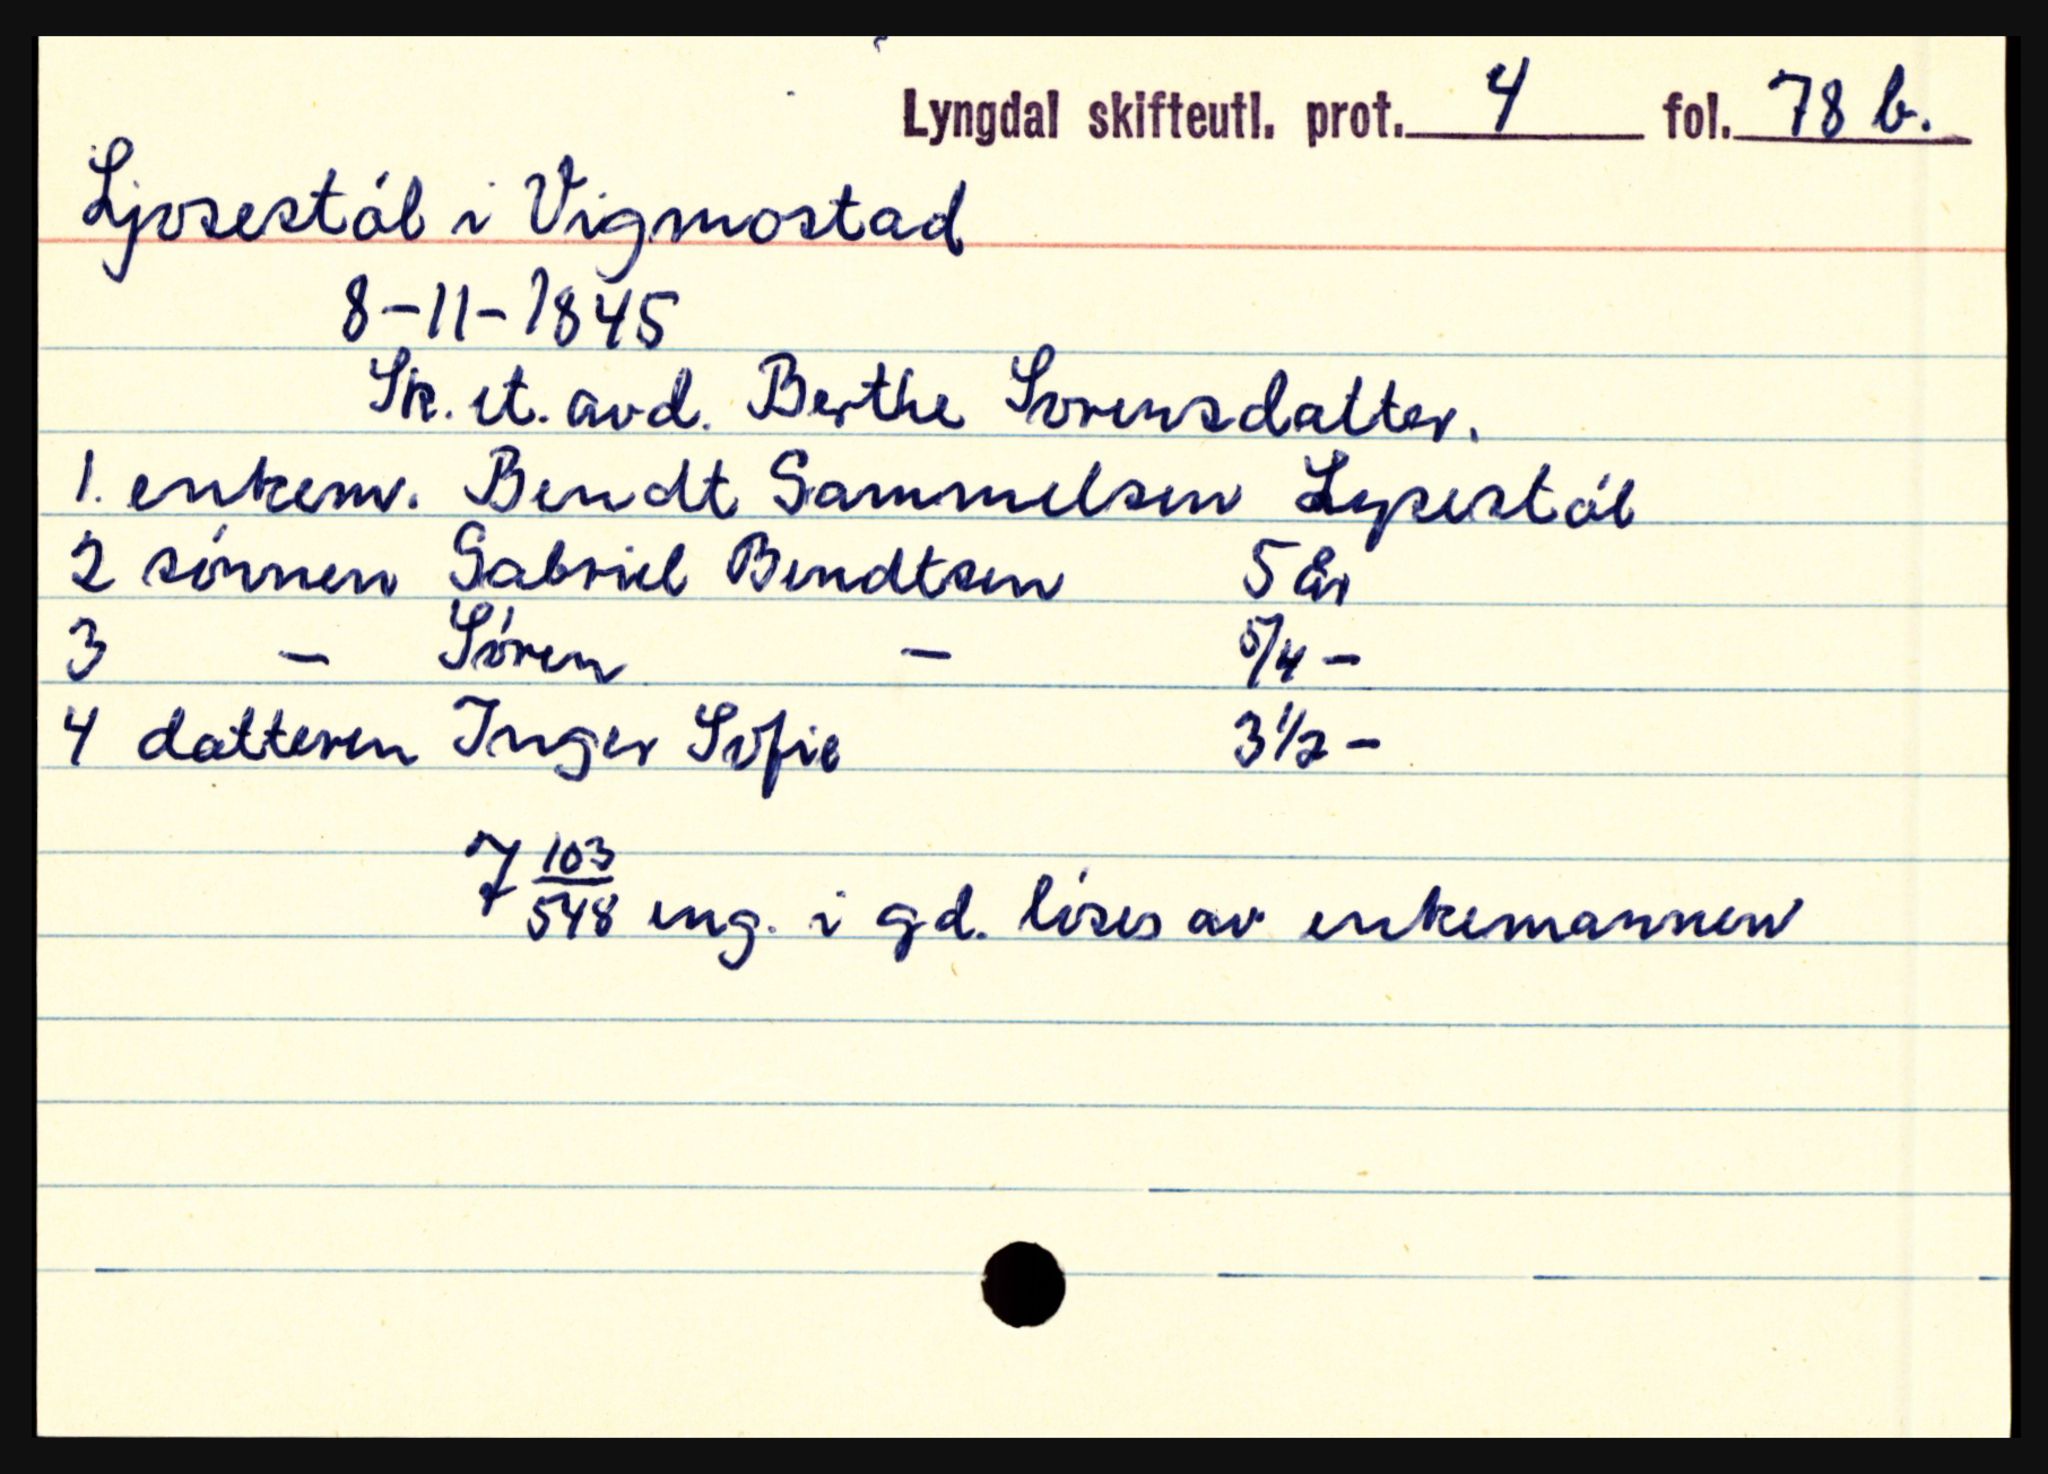 Lyngdal skifteutl. prot. 4 fol. 78 b.
Ljosestól i Vigmostad
8-11-1845
Sk. et. avd. Berthe Sorensdatter.
1. enkem. Bendt Sammelsen Lysestól
2 sónnen Gabriel Bendtsen 5 år
3 - Sóren - 5/4 -
4 datteren Inger Sofie 3 1/2 -
7 103/548 eng. i gd. lóses av enkemannen